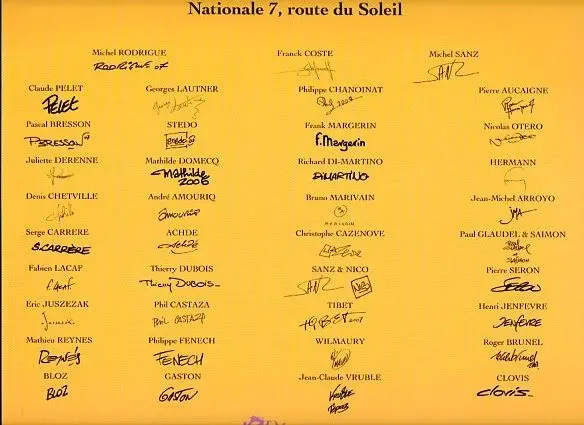 Nationale 7, route du Soleil
Michel RODRIGUE Franck COSTE Michel SANZ
RODRIGUE 07 SANZ
Claude PELET Georges LAUTNER Philippe CHANOINAT Pierre AUCAIGNE
PELET
Pascal BRESSON STEDO Frank MARGERIN Nicolas OTERO
P.BRESSON F.Margerin
Juliette DERENNE Mathilde DOMECQ Richard DI-MARTINO HERMANN
Mathilde 2006 DIMARTINO
Denis CHETVILLE André AMOURIQ Bruno MARIVAIN Jean-Michel ARROYO
AMOURIQ MARIVAIN JMA
Serge CARRERE ACHDE Christophe CAZENOVE Paul GLAUDEL & SAIMON
S.CARRÈRE Achdé CAZENOVE
Fabien LACAF Thierry DUBOIS SANZ & NICO Pierre SERON
F. LACAF Thierry DUBOIS SANZ
Eric JUSZEZAK Phil CASTAZA TIBET Henri JENFEVRE
Phil CASTAZA TIBET JENFEVRE
Mathieu REYNES Philippe FENECH WILMAURY Roger BRUNEL
REYNÈS FENECH
BLOZ GASTON Jean-Claude VRUBLE CLOVIS
BLOZ GASTON clovis